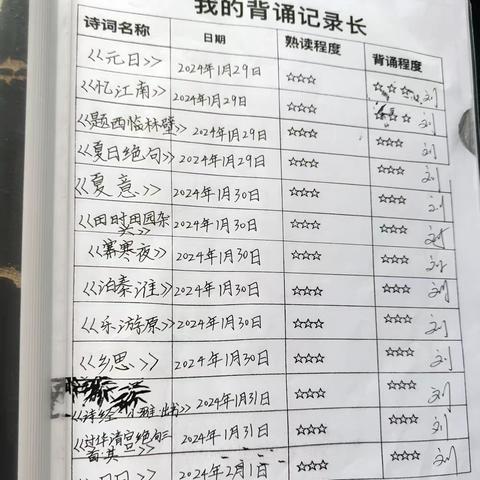 我的背诵记录长
诗词名称 日期 熟读程度 背诵程度
《元日》 2024年1月29日 ☆☆☆ ☆☆☆ 刘
《忆江南》 2024年1月29日 ☆☆☆ ☆☆☆ 刘
《题西临林壁》 2024年1月29日 ☆☆☆ ☆☆☆ 刘
《夏日绝句》 2024年1月29日 ☆☆☆ ☆☆☆ 刘
《夏意》 2024年1月30日 ☆☆☆ ☆☆☆ 刘
《田时田园杂 2024年1月30日 ☆☆☆ ☆☆☆ 刘
》
《寒夜》 2024年1月30日 ☆☆☆ ☆☆☆ 刘
《泊秦淮》 2024年1月30日 ☆☆☆ ☆☆☆ 刘
《乐游原》 2024年1月30日 ☆☆☆ ☆☆☆ 刘
《乡思》 2024年1月30日 ☆☆☆ ☆☆☆ 刘
《诗经 》 2024年1月31日 ☆☆☆ ☆☆☆ 刘
《过华清宫绝句三 2024年1月31日 ☆☆☆ ☆☆☆ 刘
首·其》
2024年2月1日 ☆☆☆ ☆☆☆ 刘